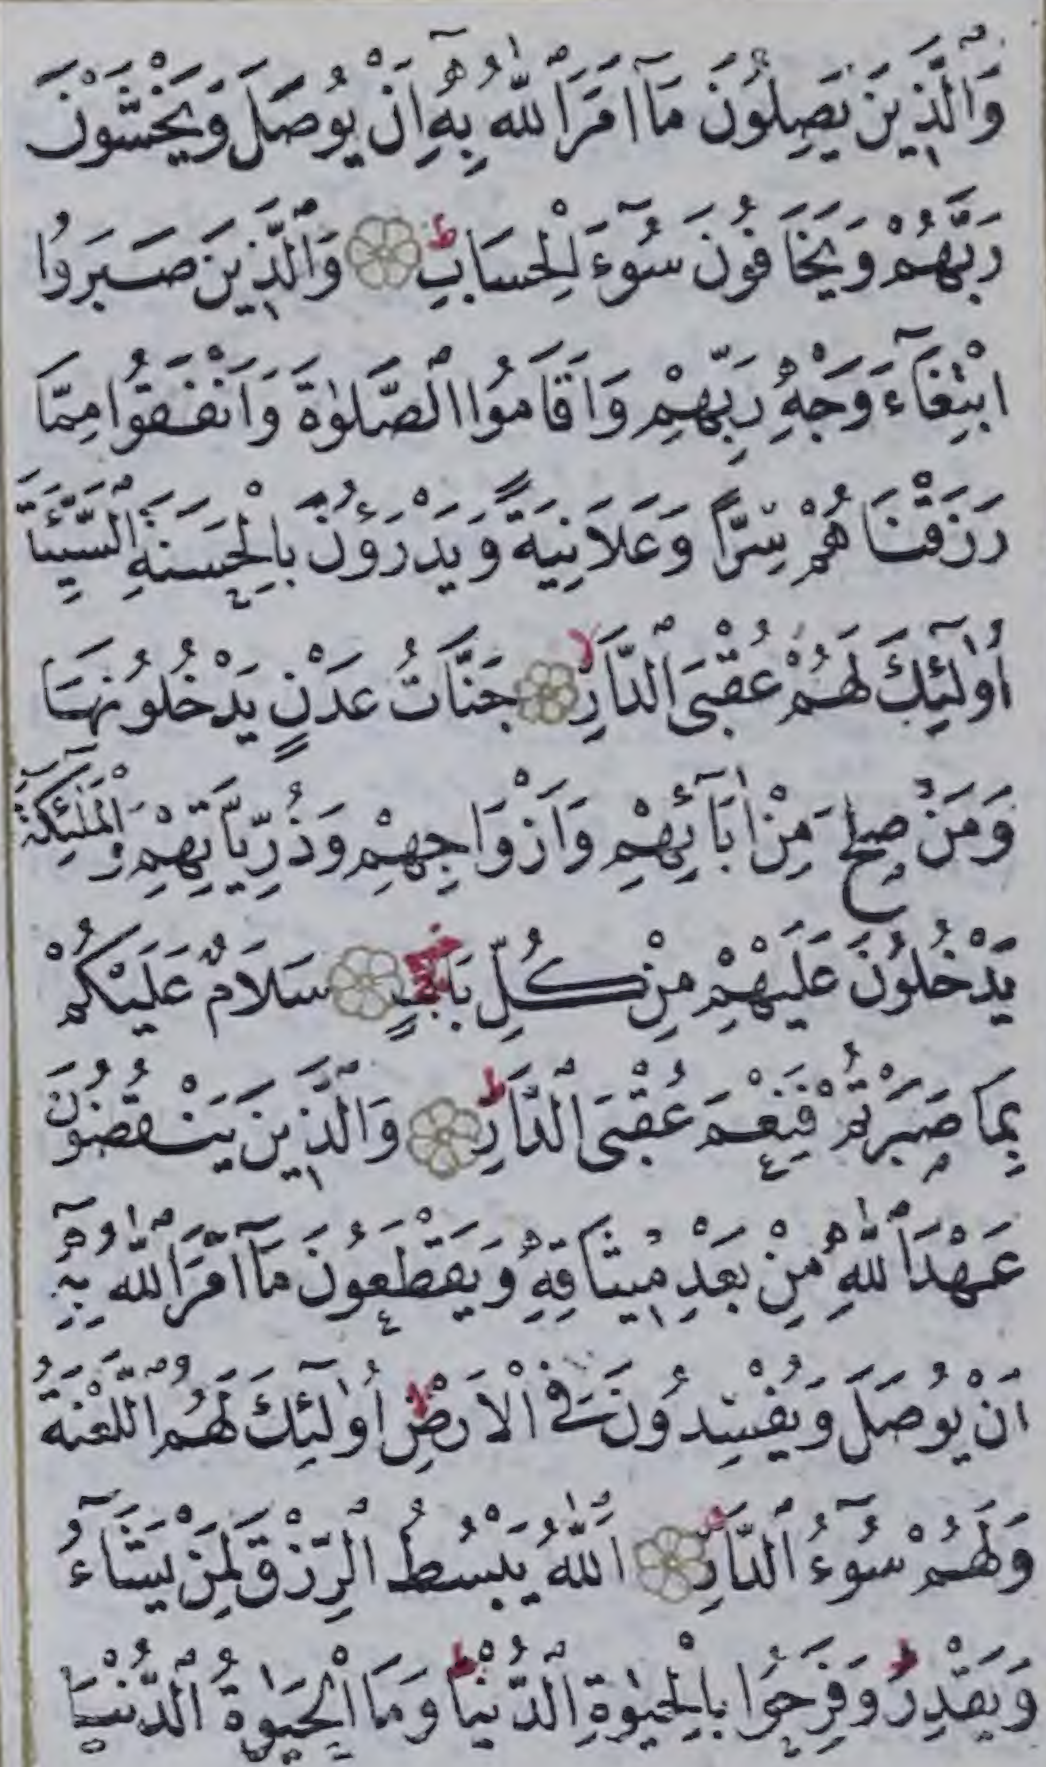 وَالَّذِينَ يَصِلُونَ مَآ اَمَرَ اللّٰهُ بِهِٓ اَنْ يُوصَلَ وَيَخْشَوْنَ
رَبَّهُمْ وَيَخَافُونَ سُوٓءَ الْحِسَابِ ط وَالَّذِينَ صَبَرُوا
ابْتِغَآءَ وَجْهِ رَبِّهِمْ وَاَقَامُوا الصَّلٰوةَ وَاَنْفَقُوا مِمَّا
رَزَقْنَاهُمْ سِرًّا وَعَلَانِيَةً وَيَدْرَؤُنَ بِالْحَسَنَةِ السَّيِّئَةَ
اُولٰٓئِكَ لَهُمْ عُقْبَى الدَّارِ لا جَنَّاتُ عَدْنٍ يَدْخُلُونَهَا
وَمَنْ صَلَحَ مِنْ اٰبَآئِهِمْ وَاَزْوَاجِهِمْ وَذُرِّيَّاتِهِمْ وَالْمَلٰٓئِكَةُ
يَدْخُلُونَ عَلَيْهِمْ مِنْ كُلِّ بَابٍ سَلَامٌ عَلَيْكُمْ
بِمَا صَبَرْتُمْ فَنِعْمَ عُقْبَى الدَّارِ ط وَالَّذِينَ يَنْقُضُونَ
عَهْدَ اللّٰهِ مِنْ بَعْدِ مِيثَاقِهِ وَيَقْطَعُونَ مَآ اَمَرَ اللّٰهُ بِهِٓ
اَنْ يُوصَلَ وَيُفْسِدُونَ فِي الْاَرْضِ لا اُولٰٓئِكَ لَهُمُ اللَّعْنَةُ
وَلَهُمْ سُوٓءُ الدَّارِ اَللّٰهُ يَبْسُطُ الرِّزْقَ لِمَنْ يَشَآءُ
وَيَقْدِرُ ط وَفَرِحُوا بِالْحَيٰوةِ الدُّنْيَا ط وَمَا الْحَيٰوةُ الدُّنْيَا